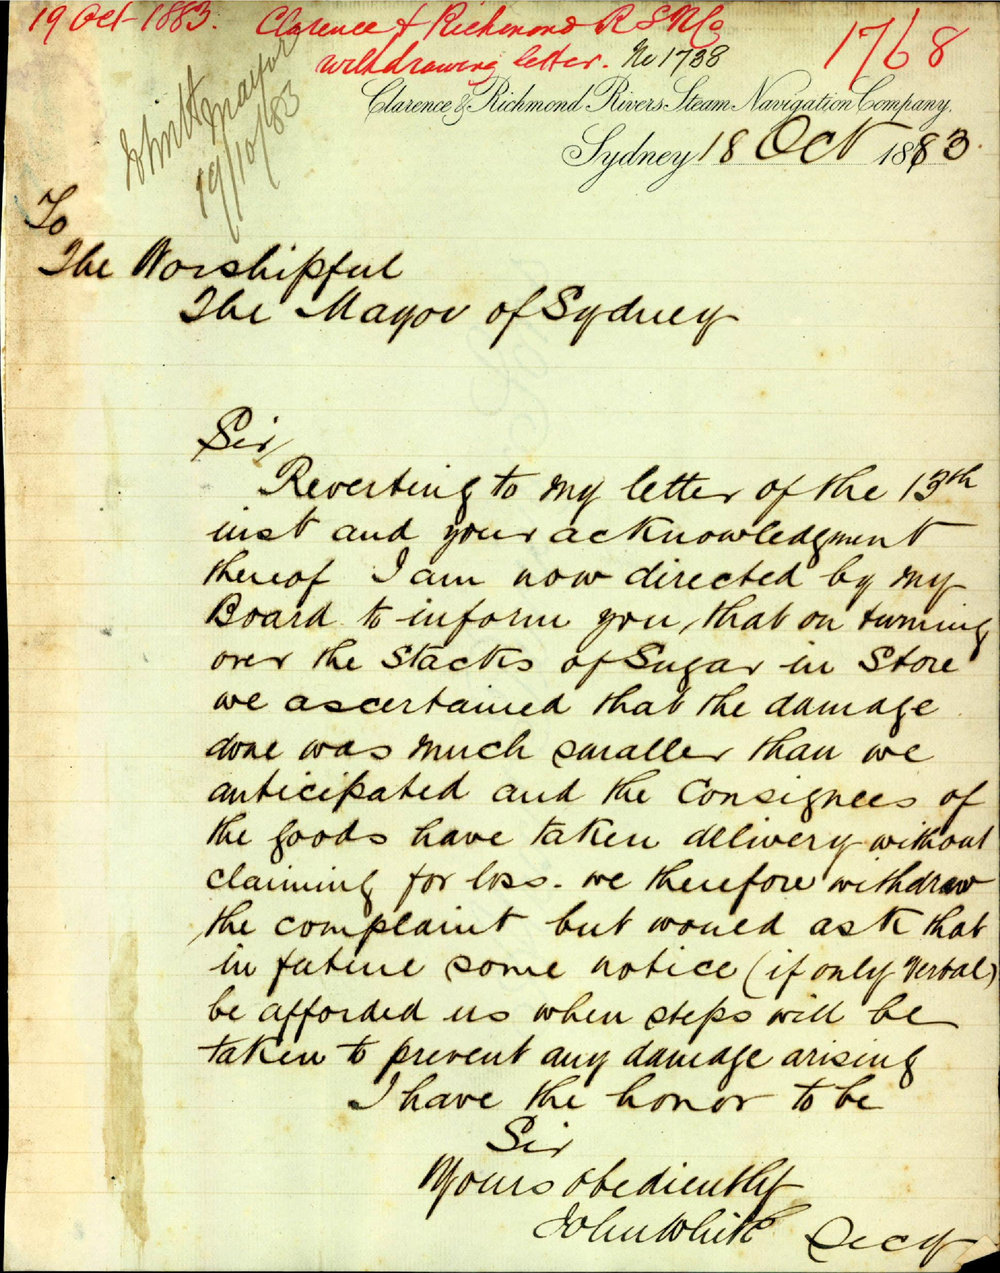 19 Oct 1883. Clarence & Richmond R S N Co
withdrawing letter. No 1738
1768
Mayor
19/10/83
Clarence & Richmond Rivers Steam Navigation Company.
Sydney 18 Oct 1883.
To
The Worshipful
The Mayor of Sydney
Sir,
Reverting to my letter of the 13th
inst and your acknowledgment
thereof I am now directed by my
Board to inform you, that on turning
over the Stacks of Sugar in Store
we ascertained that the damage
done was much smaller than we
anticipated and the Consignees of
the goods have taken delivery without
claiming for loss. we therefore withdraw
the complaint but would ask that
in future some notice (if only verbal)
be afforded us when steps will be
taken to prevent any damage arising
I have the honor to be
Sir
Yours obediently
John White Secy